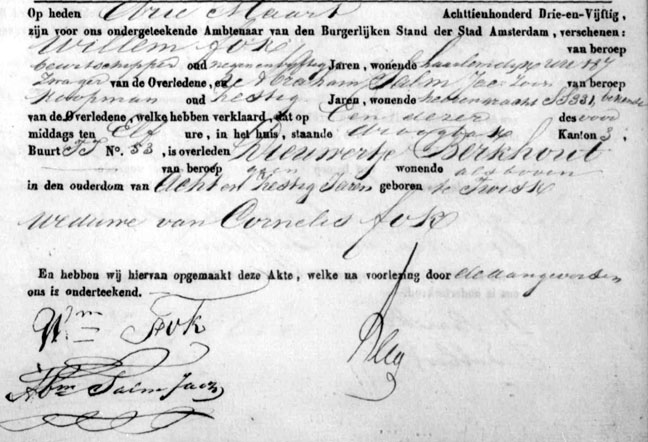 Op heden Drie Maart Achttienhonderd Drie-en-Vijftig,
zijn voor ons ondergeteekende Ambtenaar van den Burgerlijken Stand der Stad Amsterdam, verschenen:
Willem Fok van beroep
beurtschipper oud negenenvijftig Jaren, wonende haarlemdijk 187
Zwager van de Overledene, en de Abraham Salm Jac: Zoon van beroep
Koopman oud zestig Jaren, wonende heerenmarkt 331, bekende
van de Overledene, welke hebben verklaard, dat op Een dezer des voor
middags ten Elf ure, in het huis, staande droogbak Kanton 3,
Buurt TT No. 53, is overleden Nieuwertje Berkhout
van beroep geen wonende alsboven
in den ouderdom van Acht en zestig Jaren geboren te Twisk
Weduwe van Cornelis Fok
En hebben wij hiervan opgemaakt deze Akte, welke na voorlezing door de Aangevers en
ons is onderteekend.
Wm Fok
Abm Salm Jacz